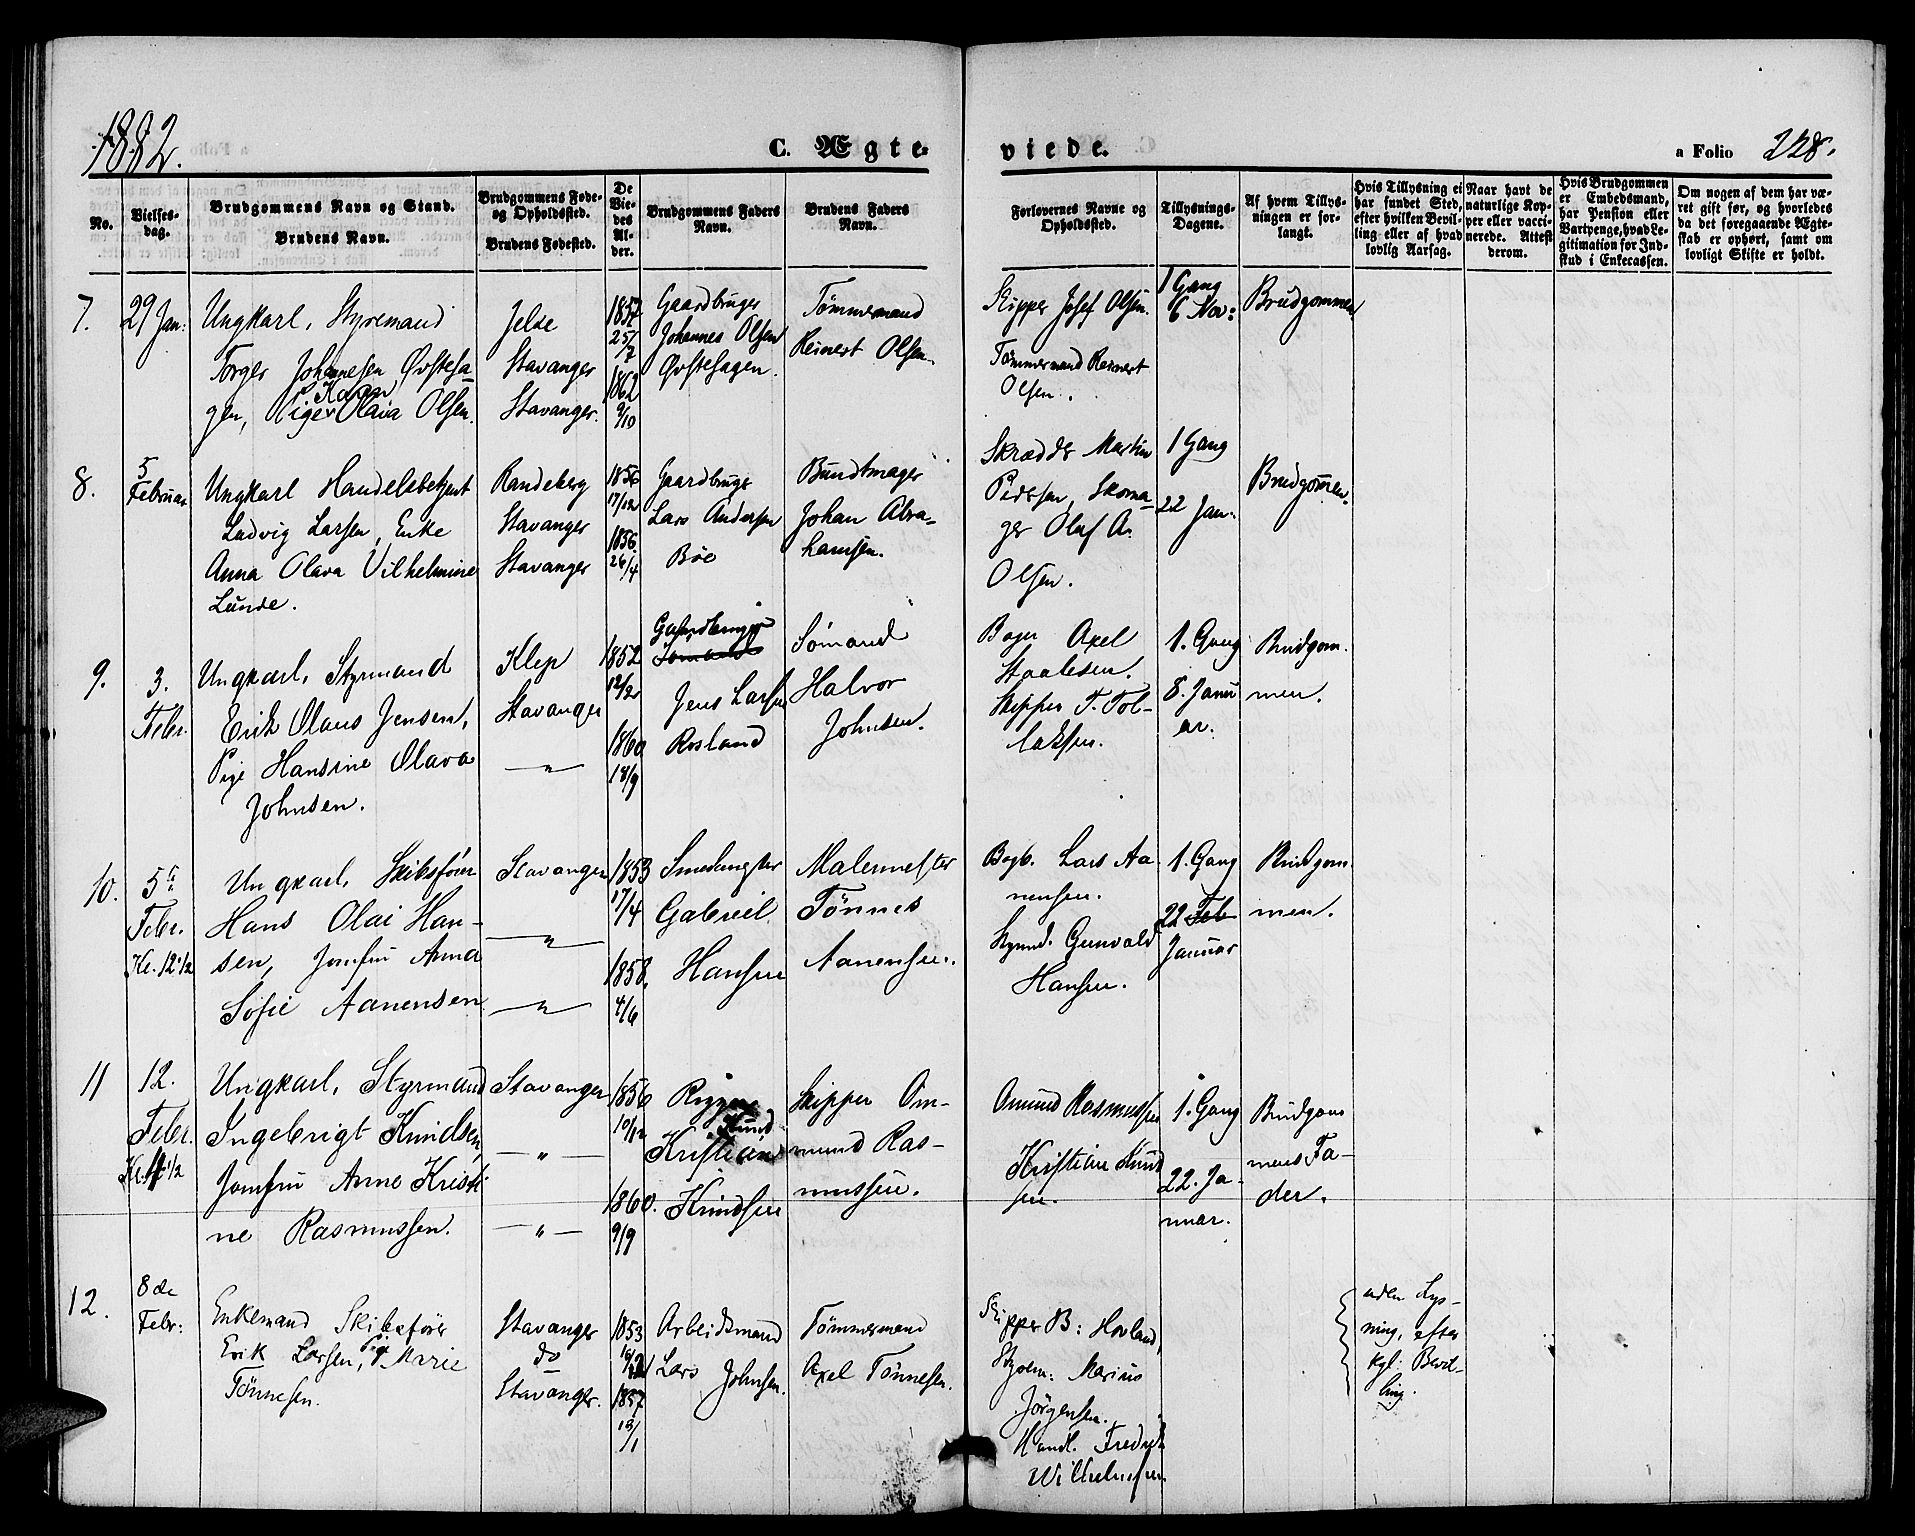 1882.
C. Ægte-
viede.
a Folio 228.
No.
Vielses-
dag.
Brudgommens Navn og Stand.
Brudens Navn.
Brudgommens Føde-
og Opholdssted.
Brudens Fødested.
De
Vie-
des
Al-
der.
Brudgommens Faders
Navn.
Brudens Faders
Navn.
Forlovernes Navne og
Opholdssted.
Tillysnings-
Dagene.
Af hvem Tillys-
ningen er for-
langt.
Hvis Tillysning ei
har fundet Sted,
efter hvilken Bevil-
ling eller af hvad
lovlig Aarsag.
Naar havt de
naturlige Kop-
per eller vacci-
nerede. Attest
derom.
Hvis Brudgommen
er Embedsmand,
har Pension eller
Vartpenge, hvad Le-
gitimation for Ind-
skud i Enkecassen.
Om nogen af dem har væ-
ret gift før, og hvorledes
da det foregaaende Ægte-
skab er ophørt, samt om
lovligt Skifte er holdt.
7.
29 Jan:
Ungkarl, Styremand
Torger Johannesen Øvstesa-
gen, Pige Karen Olava Olsen.
Jelse
Stavanger
Stavanger.
1857
25/7
1862
9/10
Gaardbruger
Johannes Olsen
Øvstesagen.
Tømmermand
Reinert Olsen.
Skipper Josef Olsen.
Tømmermand Reinert
Olsen.
1 Gang
6 Nov:
Brudgommen
8.
5
Februar
Ungkarl Handelsbetjent
Ludvig Larsen, Enke
Anna Olava Vilhelmine
Lunde.
Randeberg
Stavanger
Stavanger
1856
17/12
1856.
26/4
Gaardbruger
Lars Andersen
Bøe
Bundtmager
Johan Abra-
hamsen.
Skrædder Martin
Pedersen, Skoma-
ger Olaf A.
Olsen.
1 Gang
22 Jan:
Brudgommen.
9.
3.
Febr.
Ungkarl, Styrmand
Erik Olaus Jensen,
Pige Hansine Olava
Johnsen.
Klep
Stavanger
— " —
1852
12/2
1860
18/9
Gaardbruger
Sømand
Jens Larsen
Rosland
Sømand
Halvor
Johnsen.
Bager Axel
Staalesen.
Skipper T. Tol-
laksen.
1. Gang
8. Janu
ar.
Brudgom-
men.
10.
5te
Febr.
Kl. 12 1/2
Ungkarl, Skibsfører
Hans Olai Han-
sen, Jomfru Anna
Sofie Aanensen
Stavanger
— " —
— " —
1853
17/4
1858.
4/6
Smedmester
Gabriel
Hansen
Malermester
Tønnes
Aanensen.
Bogb. Lars Aa-
nensen.
Styrmd. Gunvald
Hansen.
1. Gang
22 Feb
Januar
Brudgom-
men.
11
12.
Febr.
Kl. 4 1/2
Ungkarl, Styrmand
Ingebrigt Knudsen,
Jomfru Anne Kristi
ne Rasmussen.
Stavanger
— " —
— " —
1856
10/12
1860.
9/9
Rigger
Knud
Kristian
Knudsen
Skipper Om-
mund Ras-
mussen.
Omund Rasmussen
Kristian Knud
sen.
1. Gang
22. Ja-
nuar.
Brudgom
mens Fa-
der.
12.
8de
Febr:
Enkemand Skibsfører
Erik Larsen, Pige Marie
Tønnesen.
Stavanger
do
Stavanger.
1853
1857
13/1
Arbeidsmand
Lars Johnsen.
Tømmermand
Axel Tønnesen.
Skipper B: Hovland,
Marius
Jørgensen.
Handl. Fredrik
Wilhelmsen.
uden Lys-
ning, efter
kgl: Bevil-
ling.